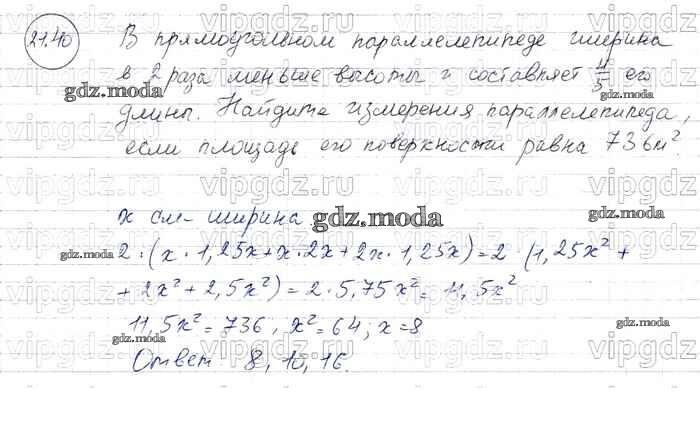 21.40 В прямоугольном параллелепипеде ширина
в 2 раза меньше высоты и составляет 4/5 его
длины. Найдите измерения параллелепипеда,
если площадь его поверхности равна 736м².
x см - ширина
2·(x·1,25x+x·2x+2x·1,25x)=2·(1,25x²+
+2x²+2,5x²)=2·5,75x²=11,5x²
11,5x²=736, x²=64; x=8
Ответ 8, 10, 16.
vipgdz.ru
gdz.moda